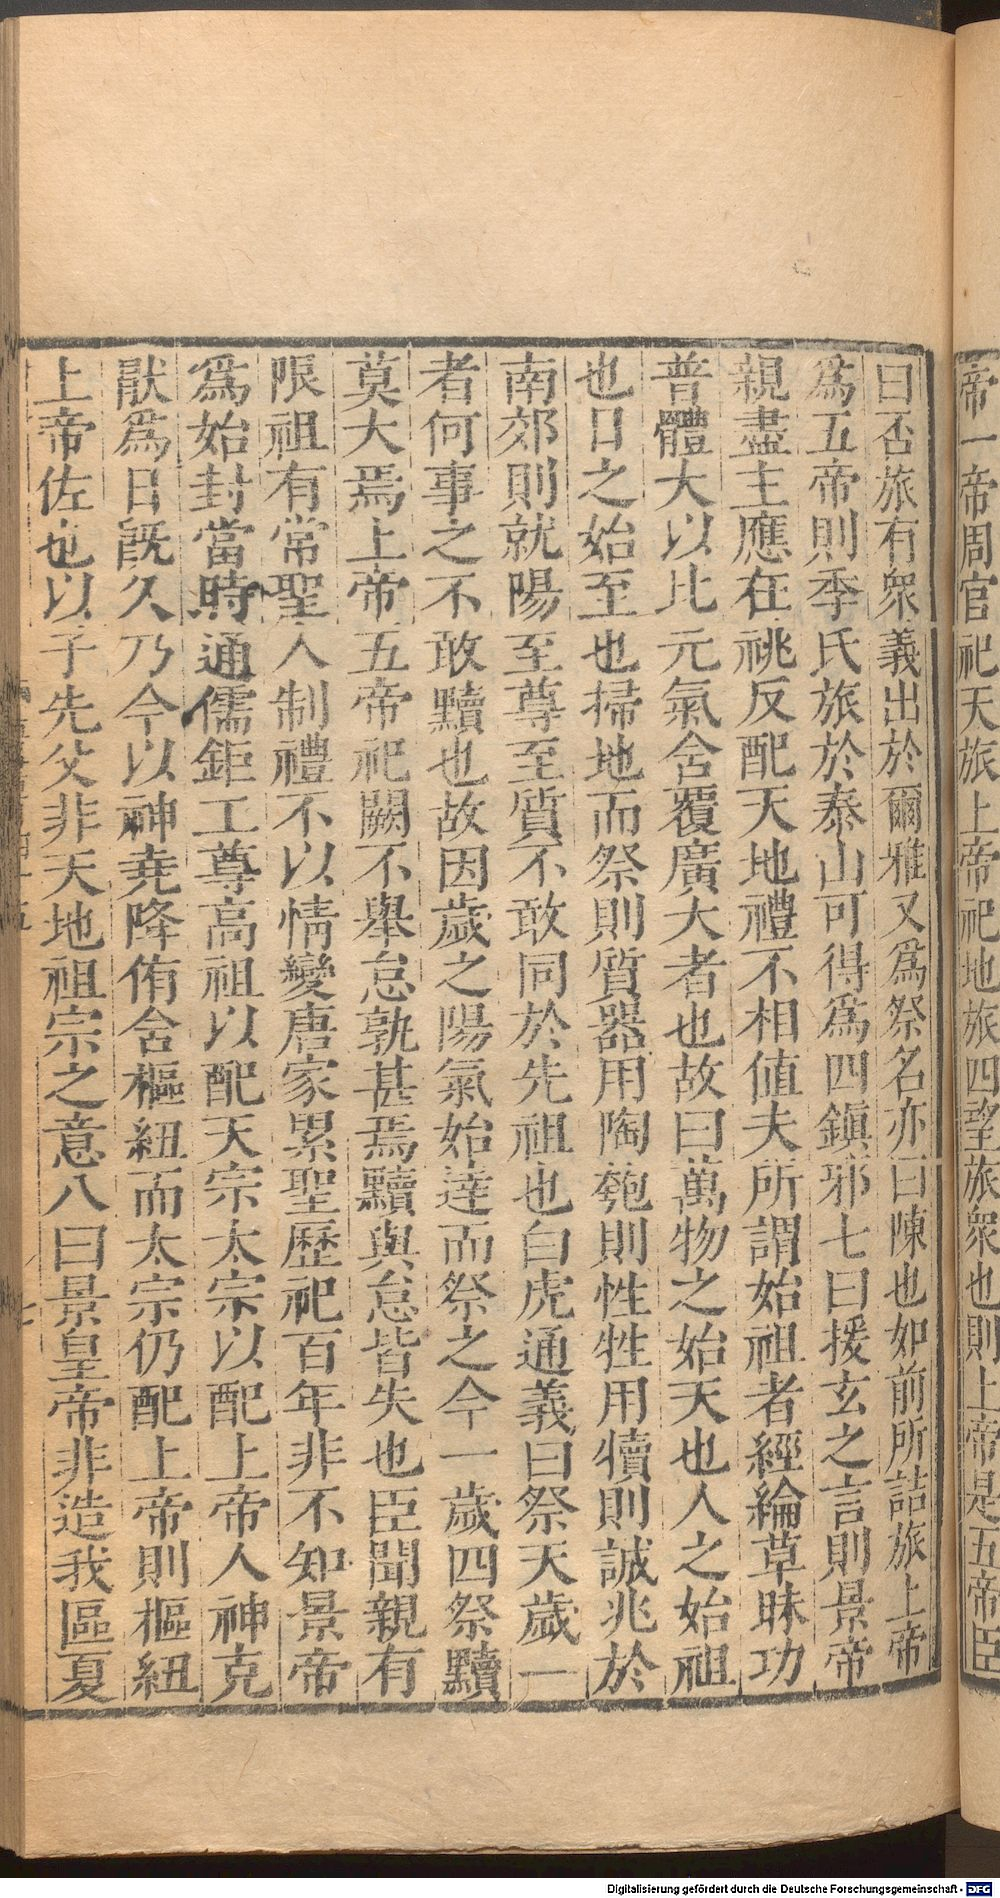 帝一帝周官祀天旅上帝祀地旅四望旅衆也則上帝是五帝臣
曰否旅有衆義出於爾雅又爲祭名亦曰陳也如前所詰旅上帝
爲五帝則季氏旅於泰山可得爲四鎭邪七曰援玄之言則景帝
親盡主應在祧反配天地禮不相值夫所謂始祖者經綸草昧功
普體大以比元氣含覆廣大者也故曰萬物之始天也人之始祖
也日之始至也掃地而祭則質器用陶匏則性牲用犢則誠兆於
南郊則就陽至尊至質不敢同於先祖也白虎通義曰祭天歲一
者何事之不敢黷也故因歲之陽氣始達而祭之今一歲四祭黷
莫大焉上帝五帝祀闕不舉怠孰甚焉黷與怠皆失也臣聞親有
限祖有常聖人制禮不以情變唐家累聖歷祀百年非不知景帝
爲始封當時通儒鉅工尊高祖以配天宗太宗以配上帝人神克
猒爲日旣久乃今以神堯降侑含樞紐而太宗仍配上帝則樞紐
上帝佐也以子先父非天地祖宗之意八曰景皇帝非造我區夏
Digitalisierung gefördert durch die Deutsche Forschungsgemeinschaft - DFG